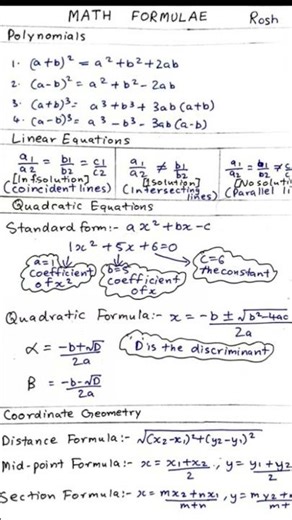 MATH FORMULAE Rosh
Polynomials
1. (a+b)² = a²+b²+2ab
2. (a-b)² = a²+b²-2ab
3. (a+b)³ = a³+b³+3ab(a+b)
4. (a-b)³ = a³-b³-3ab(a-b)
Linear Equations
a₁/a₂ = b₁/b₂ = c₁/c₂ a₁/a₂ ≠ b₁/b₂ a₁/a₂ = b₁/b₂ ≠ c
[Inf solution] [1 solution] [No soluti
(coincident lines) (Intersecting lines) (Parallel li
Quadratic Equations
Standard form:- ax²+bx-c
1x²+5x+6=0
a=1 coefficient of x² b=5 coefficient of x c=6 the constant
Quadratic Formula:- x = -b ± √b²-4ac / 2a
α = -b+√D / 2a 'D' is the discriminant
β = -b-√D / 2a
Coordinate Geometry
Distance Formula:- √(x₂-x₁)²+(y₂-y₁)²
Mid-point Formula:- x = x₁+x₂ / 2, y = y₁+y₂ / 2
Section Formula:- x = mx₂+nx₁ / m+n, y = my₂+n / m+